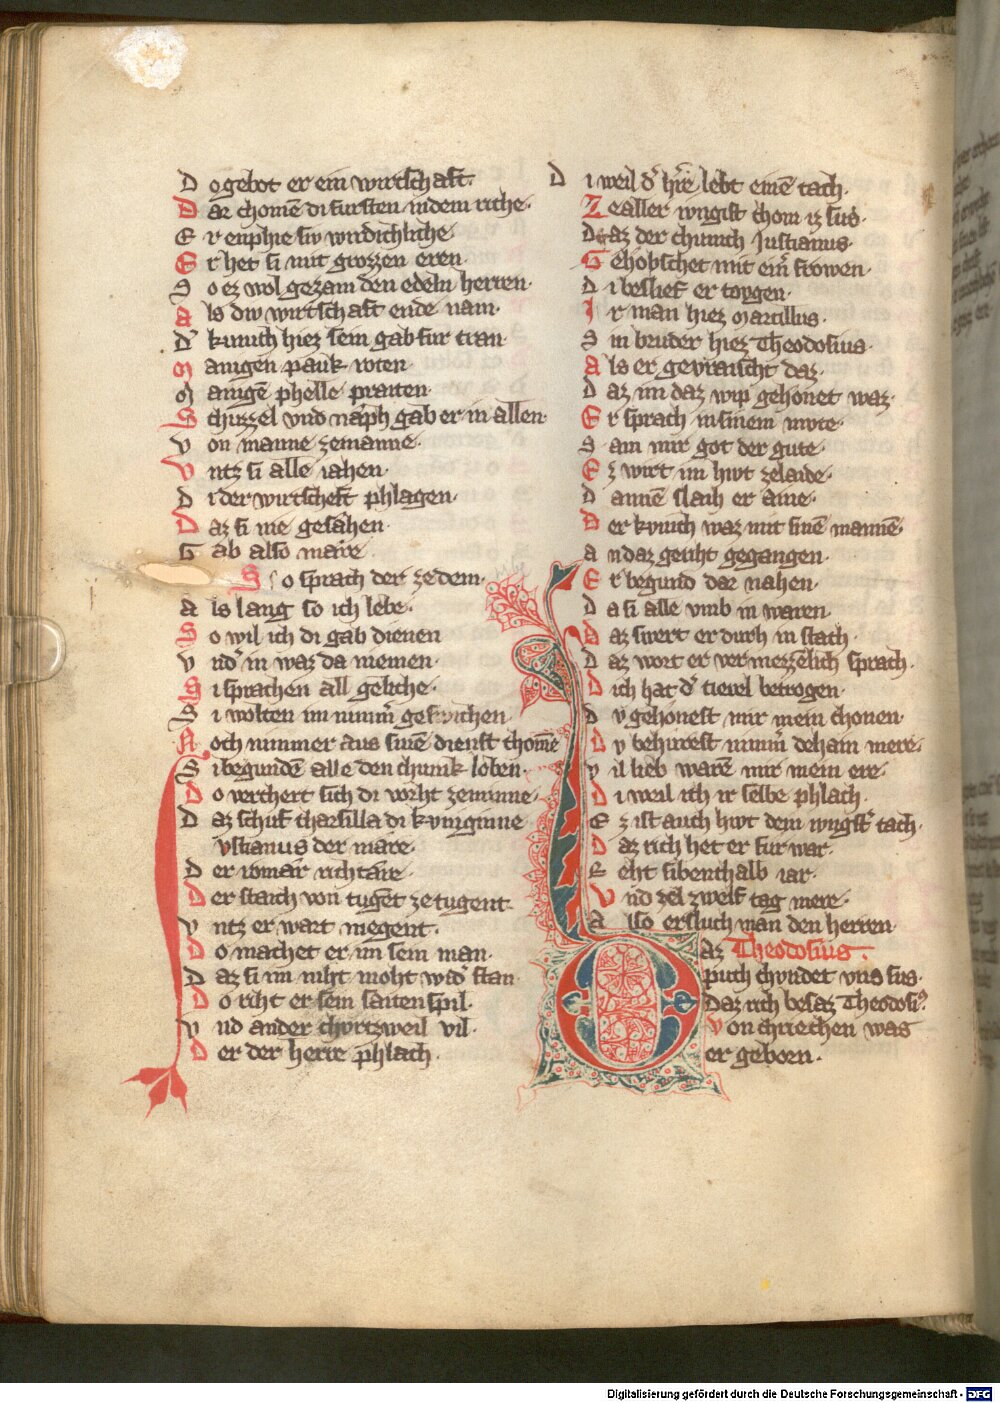 D o gebot er ein wirtschaft·
D ar chomē di fursten in dem riche·
E r enphie siv wirdichliche·
E r het si mit grozzen eren·
S o ez wol gezam den edeln herren·
A ls div wirtschaft ende nam·
D͛ kunich hiez sein gab fur tran·
M anigen pauk roten·
M anigē phelle praiten·
S chuzzel vnd naph gab er in allen·
V on manne zemanne·
V ntz si alle iahen·
D i der wirtscheft phlagen·
D az si nie gesahen·
G ab also maire·
S o sprach der zedem·
A ls lang so ich lebe·
S o wil ich di gab dienen
V nd͛ in waz da niemen·
S i sprachen all geliche·
S i wolten im nimm͛ geswichen·
N och nimmer aus sinē dienst chomē
S i begundē alle den chunik loben·
D o verchert sich di vorht ze minne·
D az schuf tharsilla di kuniginne
Vstianus der mare·
D er romar͛ richtare·
D er starch von tugēt ze tugent·
V ntz er wart megent·
D o machet er im sein man·
D az si im niht moht wid͛ stan
D o riht er sein saitenspil·
V nd ander churtzweil vil·
D er der herre phlach·
D i weil d͛ h͛re lebt einē tach·
Z e aller ivngist chom iz sus·
D az der chunich Justianus·
G ehobschet mit ein͛ frowen·
D i beslief er tovgen·
I r man hiez Marcillus·
S in bruder hiez Theodosius·
A ls er gevraischt daz·
D az im daz wip gehonet waz·
E r sprach in sinem mvte·
S am mir got der gute·
E z wirt im hivt zelaide·
D annē slaih er aine·
D er kvnich waz mit sinē mannē·
A n daz geriht gegangen·
E r begund dar nahen·
D a si alle vmb in waren·
D az swert er durh in stach·
D az wort er vermezzēlich sprach·
D ich hat d͛ tievel betrogen·
D v gehonest mir mein chonen·
D v behurest nimm͛ dehain mere·
V il lieb warē mir mein ere·
D i weil ich ir selbe phlach·
E z ist auch hivt dein ivngist͛ tach·
D az rich het er fur war·
R eht sibenthalb iar·
V nd zel zwelf tag mere·
A lso ersluch man den herren
Daz Theodosius·
puch chundet vns sus·
Daz rich besaz Theodosi⁹
Von chriechen was
er geborn·
Digitalisierung gefördert durch die Deutsche Forschungsgemeinschaft - DFG